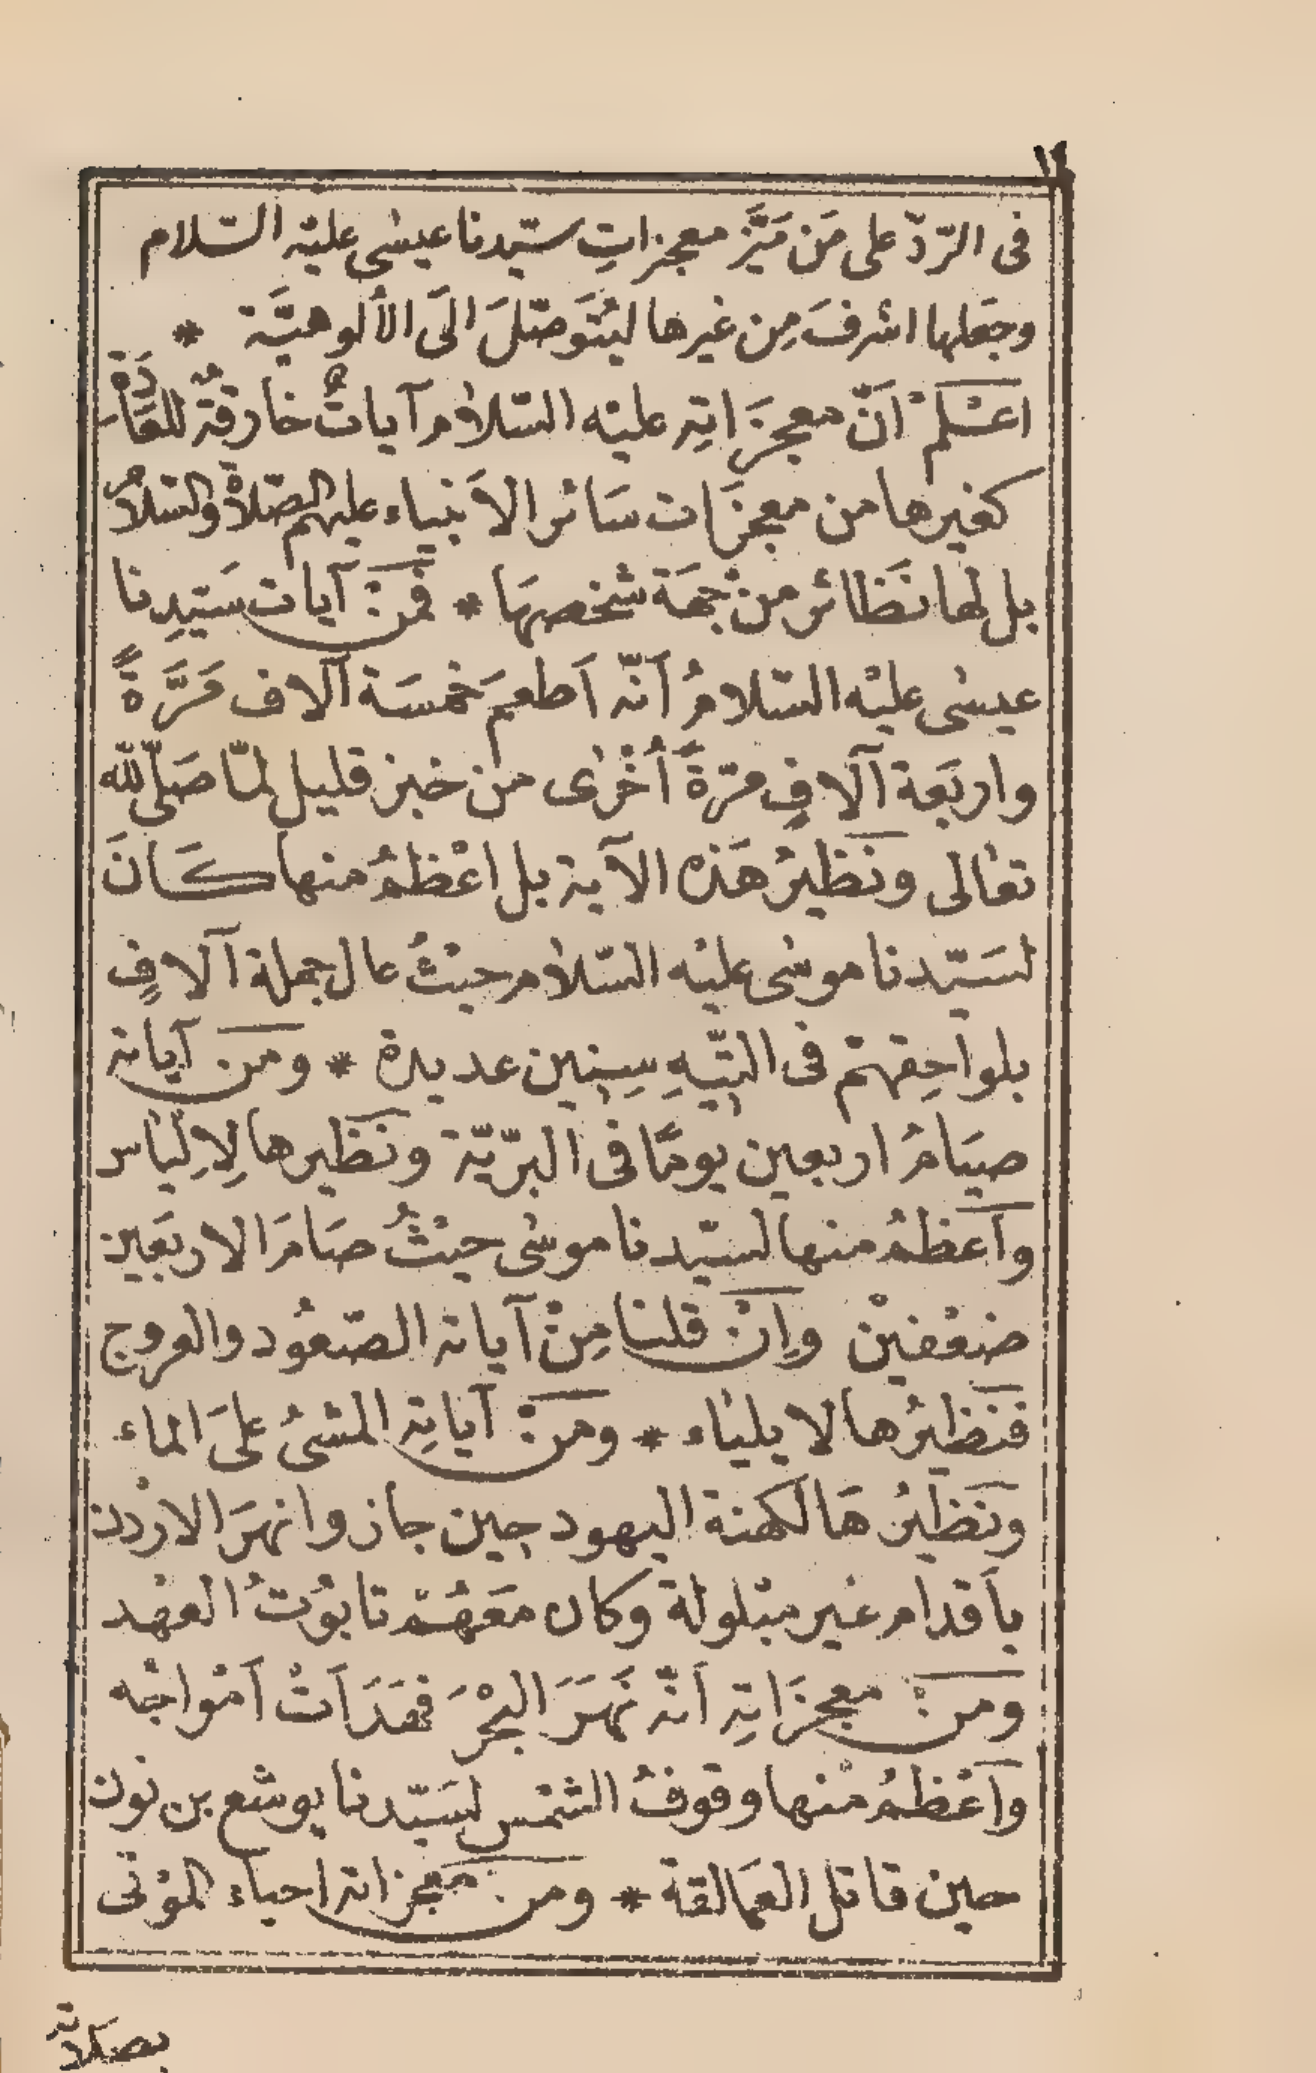 ١٢
فى الرّدّ على مَن مَيَّز معجزاتِ سيّدنا عيسٰى عليْه السّلام
وجَعلها اشرفَ مِن غيرها ليُتَوصّلَ الَى الألوهيَّة *
اعْلمْ انّ معجزَاتِه عليْه السّلام آياتٌ خارقةٌ للعَادَة
كغيرها من معجزَات سَائر الاَنبياء عليهم الصّلاةُ والسّلامُ
بل لها نَظائر منْ جهَة شخصهَا * فمَنْ آيات سَيّدِنا
عيسٰى عليْه السّلامُ أنّه اَطعمَ خمسَة آلاف مَرَّةً
واربَعة آلافٍ مرّةً أُخْرٰى من خبز قليل لمّا صَلّى لله
تعٰالى ونَظيرُ هَذه الآية بل اعْظمُ منها كَانَ
لسَيّدنا موسٰى عليْه السّلام حيْثُ عال جملة آلافٍ
بلواحِقهمْ فى التّيهِ سِنين عديدة * ومَن آياته
صيَامُ اربعين يومًا فى البرّيّة ونَظيرها لِاِليٰاس
وَاَعظمُ منها لسيّدنا موسٰى حيْثُ صَامَ الاربَعين
ضعْفينْ وإنْ قلنا مِنْ آياته الصّعُود والعروج
فنَظيرُها لايليٰاء * ومَنْ آيَاتِه المشىُ علىَ الماء
ونَظيرُهَا لكَهنة اليهود حين جازوا نهرَ الاردن
باَقدام غير مبْلولة وكان معَهُمْ تابُوتُ العهْد
ومنْ معجزَاتِه اَنّه نَهَرَ البحْرَ فهَدَاَتْ اَمْواجُه
وَاَعْظمُ منْها وقوفُ الشمْس لسَيّدنا يوشع بن نون
حين قاتل العمالقة * ومن معجزاته احياء الموْتى
بصَلاته